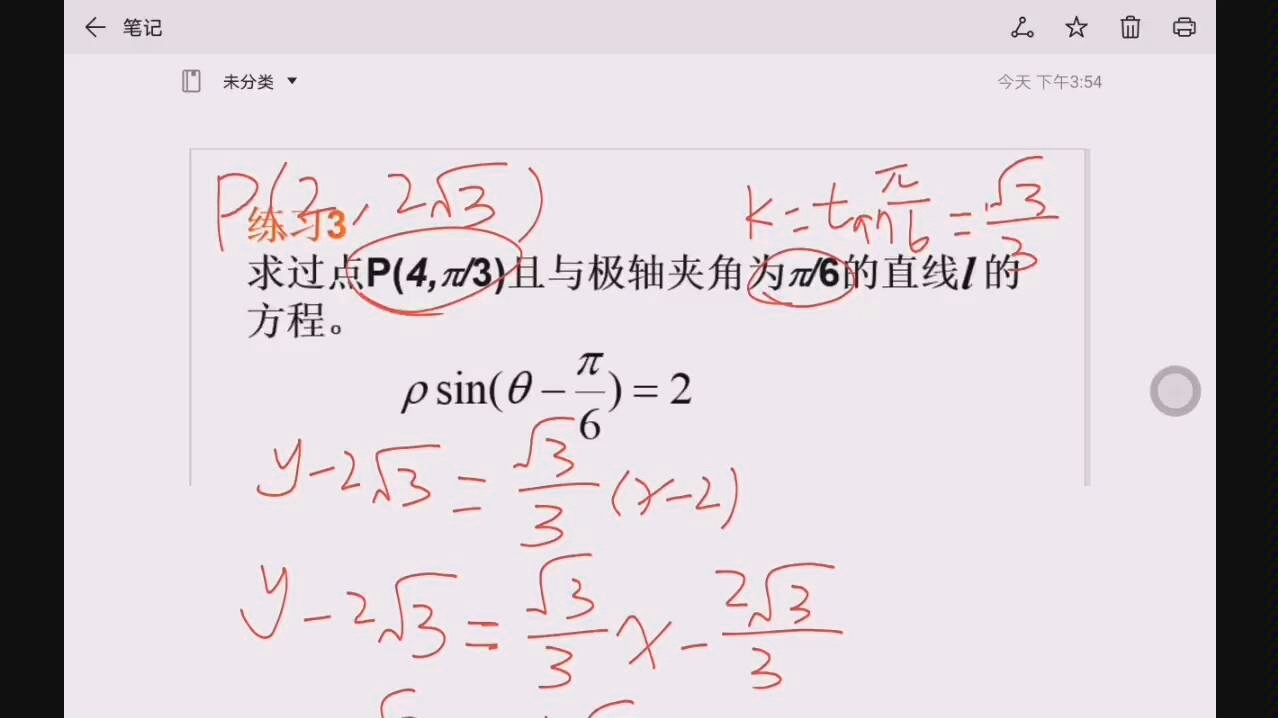 笔记
未分类
今天 下午3:54
P(2, 2√3)
k=tanπ/6=√3/3
练习3
求过点P(4,π/3)且与极轴夹角为π/6的直线l的
方程。
ρ sin(θ − π/6) = 2
y−2√3=√3/3(x−2)
y−2√3=√3/3x−2√3/3